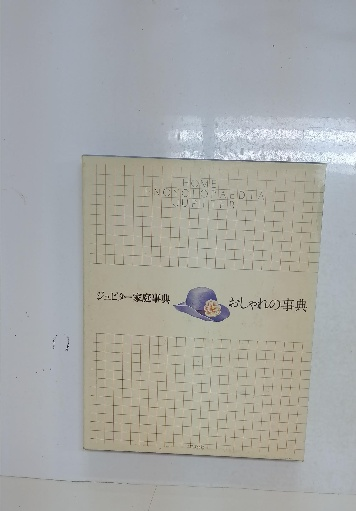 HOME
ENCYCLOPAEDIA
JUPITER
ジュピター家庭事典 おしゃれの事典